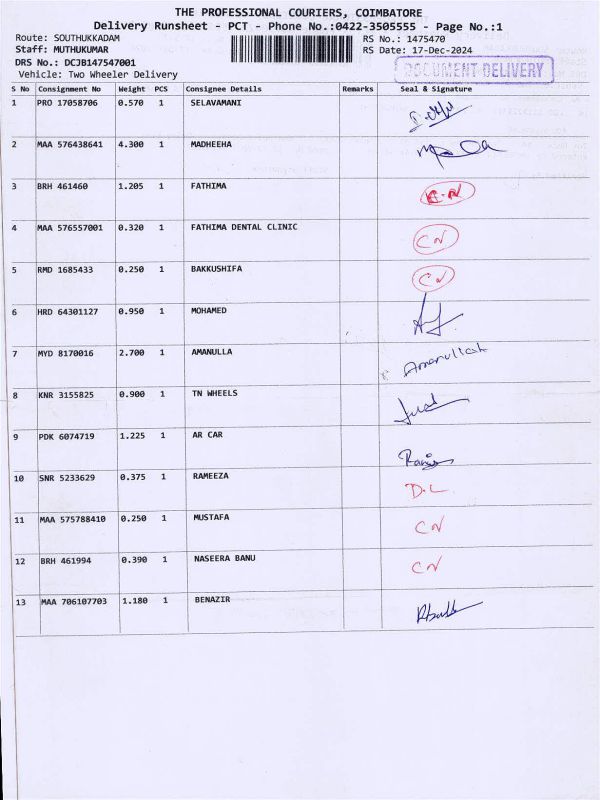 THE PROFESSIONAL COURIERS, COIMBATORE
Delivery Runsheet - PCT - Phone No.:0422-3505555 - Page No.:1
Route: SOUTHUKKADAM
RS No.: 1475470
Staff: MUTHUKUMAR
RS Date: 17-Dec-2024
DRS No.: DCJB147547001
DOCUMENT DELIVERY
Vehicle: Two Wheeler Delivery
S No Consignment No Weight PCS Consignee Details Remarks Seal & Signature
1 PRO 17058706 0.570 1 SELAVAMANI
2 MAA 576438641 4.300 1 MADHEEHA
3 BRH 461460 1.205 1 FATHIMA
4 MAA 576557001 0.320 1 FATHIMA DENTAL CLINIC CN
5 RMD 1685433 0.250 1 BAKKUSHIFA CN
6 HRD 64301127 0.950 1 MOHAMED
7 MYD 8170016 2.700 1 AMANULLA Amanullah
8 KNR 3155825 0.900 1 TN WHEELS
9 PDK 6074719 1.225 1 AR CAR
10 SNR 5233629 0.375 1 RAMEEZA D.L
11 MAA 575788410 0.250 1 MUSTAFA CN
12 BRH 461994 0.390 1 NASEERA BANU CN
13 MAA 706107703 1.180 1 BENAZIR